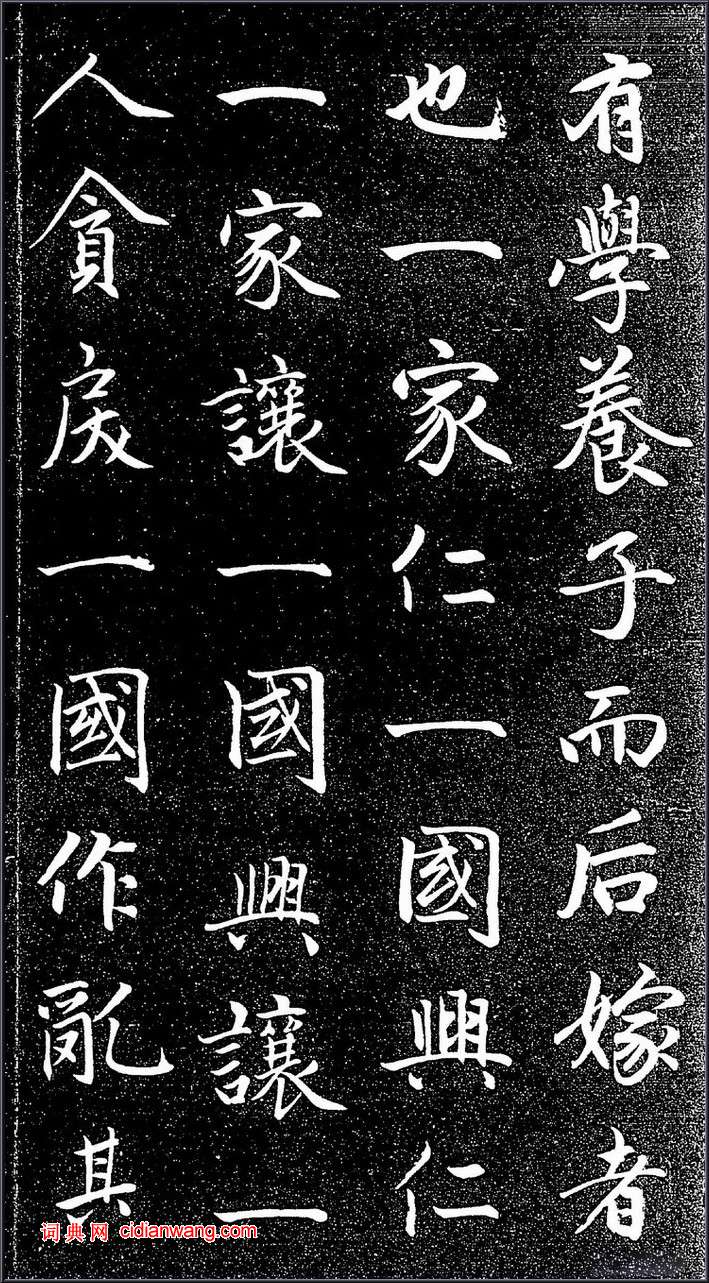 有學養子而后嫁者
也一家仁一國興仁
一家讓一國興讓一
人貪戾一國作亂其
词典网 cidianwang.com